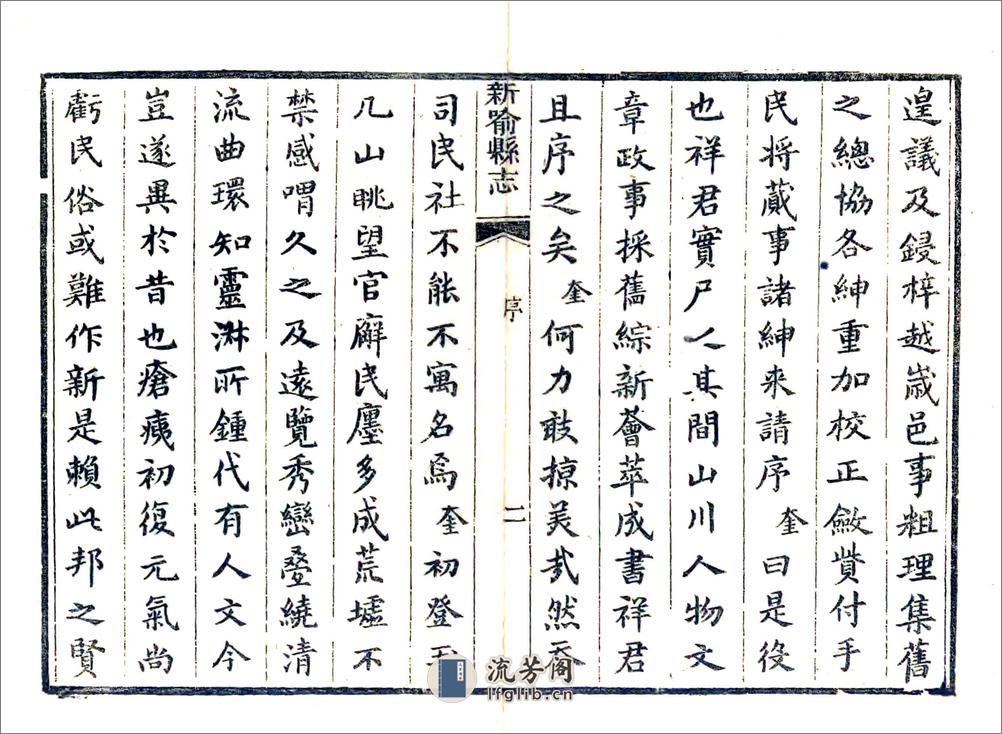 遑議及鋟梓越嵗邑事粗理集舊
之總協各紳重加校正斂貲付手
民將蕆事諸紳来請序奎曰是役
也祥君實尸之其間山川人物文
章政事採舊綜新薈萃成書祥君
且序之矣奎何力敢掠美㢤然忝
新喻縣志
序
二
司民社不能不寓名焉奎初登玉
几山眺望官廨民廛多成荒墟不
禁感喟久之及遠覽秀巒疊繞清
流曲環知靈淋所鍾代有人文今
豈遂異於昔也瘡痍初復元氣尚
虧民俗或難作新是賴此邦之賢
流芳阁
lfglib.cn